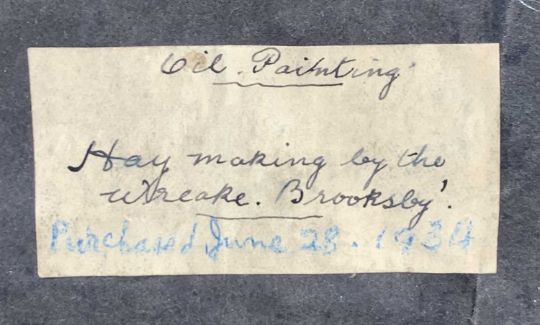 Oil. Painting
Hay making by the
Wreake. Brooksby'.
Purchased June 28. 1934